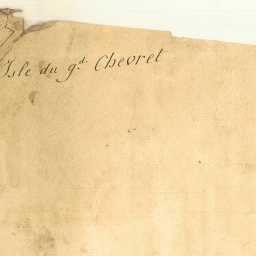 Isle du g.d Chevret